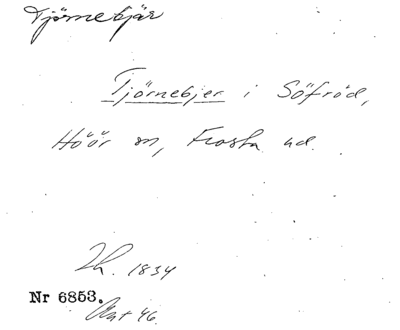 Tjörnebjär
Tjörnebjer i Söfröd,
Höör sn, Frosta hd.
Lh. 1834
Nr 6853.
Akt 46.